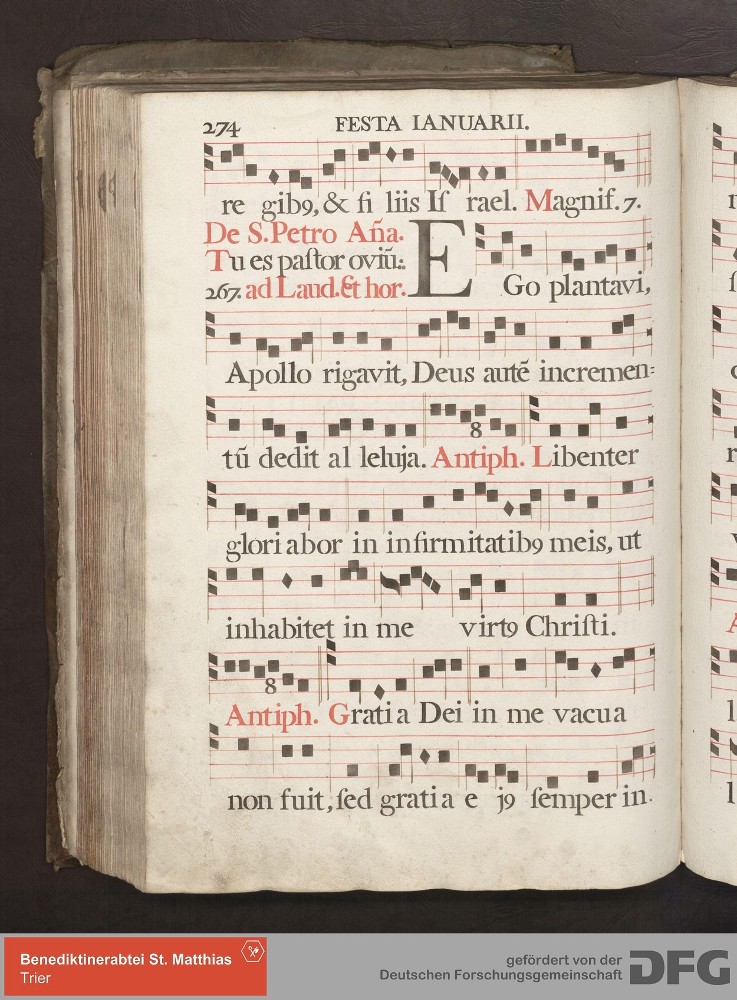 274 FESTA IANUARII.
re gib9, & fi liis Iſ rael. Magnif. 7.
De S. Petro Aña.
Tu es paſtor oviū:.
267. ad Laud. Et hor.
EGo plantavi,
Apollo rigavit, Deus autē incremen=
8
tū dedit al leluja. Antiph. Libenter
glori abor in infirmitatib9 meis, ut
inhabitet in me virt9 Chriſti.
8
Antiph. Grati a Dei in me vacua
non fuit, ſed grati a e j9 ſemper in
Benediktinerabtei St. Matthias
Trier
gefördert von der
Deutschen Forschungsgemeinschaft
DFG